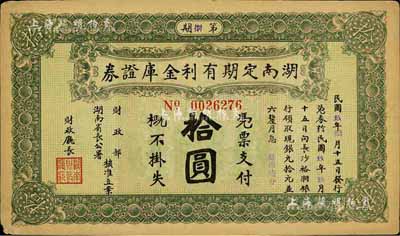 第捌期
湖南定期有利金庫證券
No 0026276
民國 年 月十五日發行
此券於民國 年 月
十五日向長沙裕湘銀
行領取現銀元拾元並
六釐月息
憑票支付
拾圓
概不掛失
財政部核准立案
湖南省長公署
財政廳長